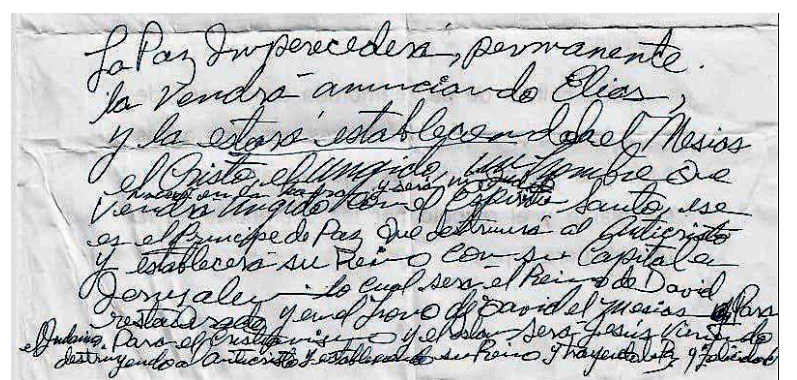 La Paz Imperecedera, permanente.
la Vendrá anunciando Elias,
y la estará estableciendola el Mesias
el Cristo, el Ungido, un Hombre que
y será
Vendra Ungido con el Espiritu Santo, ese
es el Principe de Paz que destruirá al Anticristo
y establecerá su Reino con su Capital en
Jerusalen lo cual será el Reino de David
restaurado y en el Trono de David el Mesias Para
el Judaismo. Para el Cristianismo y el Islam será Jesús Viniendo
destruyendo al Anticristo y estableciendo su Reino y trayendo la Paz y felicidad